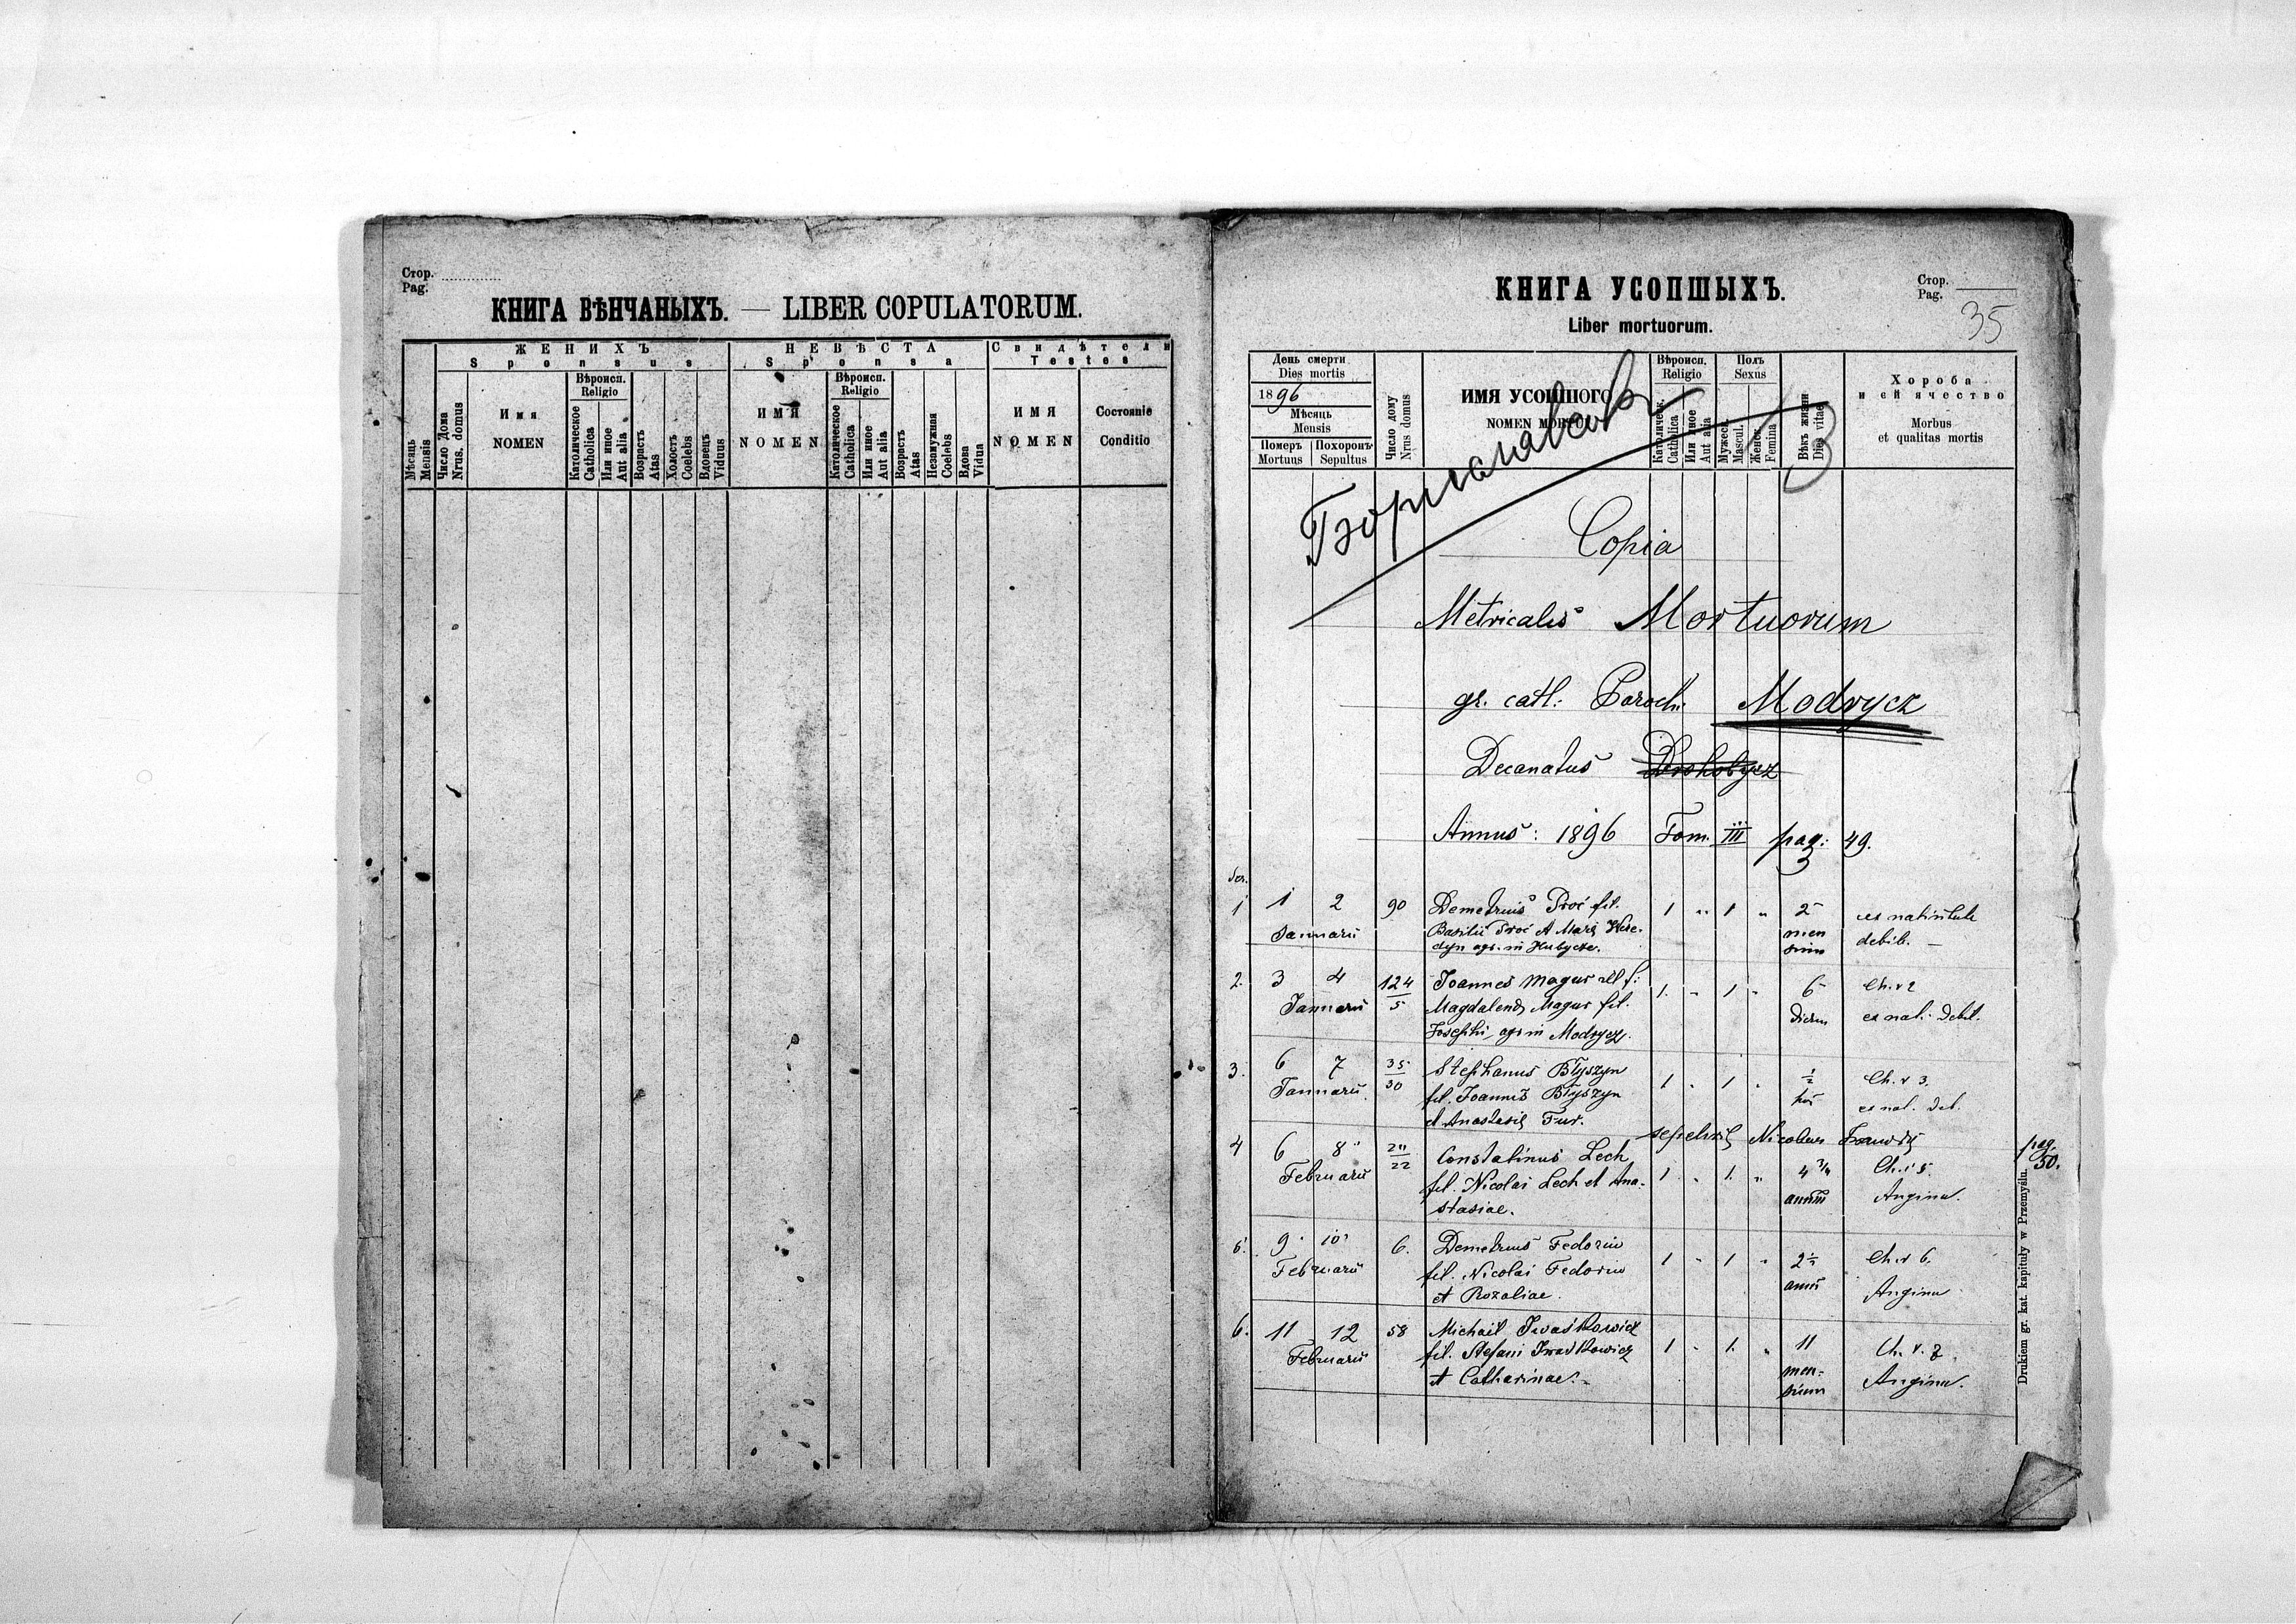 Стор.
Pag.
КНИГА ВѢНЧАНЫХЪ. — LIBER COPULATORUM.
Ж Е Н И Х Ъ
S p o n s u s
Н Е В Ѣ С Т А
S p o n s a
С в и д ѣ т е л и
T e s t e s
Мѣсяць
Mensis
Число Дома
Nrus. domus
Имя
NOMEN
Вѣроисп.
Religio
Католическое
Catholica
Или иное
Aut alia
Возрастъ
Atas
Холостъ
Coelebs
Вдовецъ
Viduus
ИМЯ
NOMEN
Вѣроисп.
Religio
Католическое
Catholica
Или иное
Aut alia
Возрастъ
Atas
Незамужная
Coelebs
Вдова
Vidua
ИМЯ
NOMEN
Состояніе
Conditio
КНИГА УСОПШЫХЪ.
Liber mortuorum.
Стор.
Pag.
35
День смерти
Dies mortis
1896
Мѣсяць
Mensis
Померъ
Mortuus
Похоронъ
Sepultus
Число дому
Nrus domus
ИМЯ УСОПШОГО
NOMEN MORTUI
Вѣроисп.
Religio
Католическ.
Catholica
Или иное
Aut alia
Полъ
Sexus
Мужеск.
Mascul.
Женск.
Femina
Вѣкъ жизни
Dies vitae
Хороба
и ей ячество
Morbus
et qualitas mortis
3
Copia
Metricales Mortuorum
gr. cath: Paroch: Modrycz
Decanatus Drohobycz
Annus: 1896 Tom. III pag: 49.
1 1 2 90 Demetrius Proć fil. 1 " 1 " 2 ex nativitate
Januarii Basilii Proć et Marię men debil. —
sium
dyn agr. in Hubycze.
2. 3 4 124/5 Joannes Magur ill f: 1. " 1 " 6
Januarii Magdalenę Magur fil. dierum ex nat. debil.
Josephi, agr in Modrycz.
3. 6 7 35/30 Stephanus Błyszyn 1 " 1 " 1/2 Ch. v 3.
Januarii. fil. Joannis Błyszyn hor ex nat. deb.
et Anastasię Fur.
sepelivit Nicolaus
4 6 8 Constatinus Lech 1 " 1. " 4 3/4 Ch. v 5. pag. 50.
Februarii fil. Nicolai Lech et Ana- annor Angina.
stasiae.
5. 9 10 6. Demetrius Fedoriw 1 " 1 " 2 1/2 Ch. v 6.
Februarii fil. Nicolai Fedoriw anni Angina
et Rozaliae.
6. 11 12 58 Michael Iwaśkowicz 1 " 1. " 11 Ch. v. 7.
Februarii fil. Stefani Iwaśkowicz men- Angina.
et Catharinae. sium
Drukiem gr. kat. kapituły w Przemyślu.